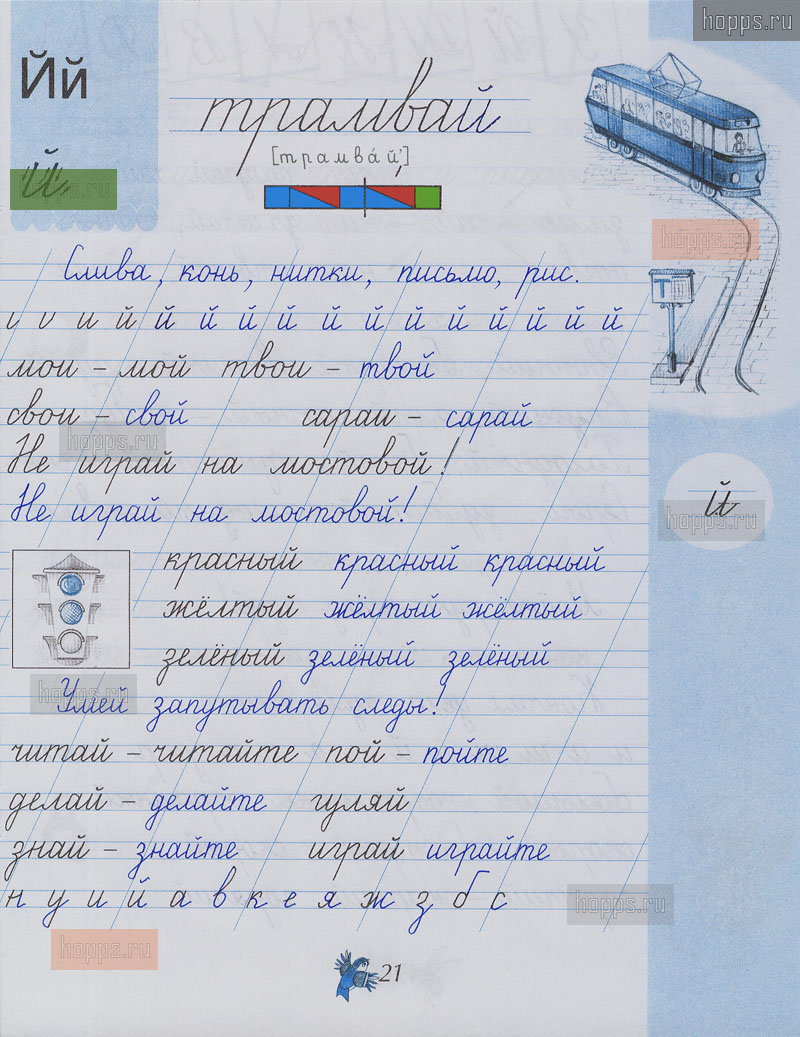 hopps.ru
Йй
трамвай
[трамва́й’]
й
hopps.ru
Слива, конь, нитки, письмо, рис.
Т
и й й й й й й й й й й й й
мои – мой твои – твой
свои – свой сараи – сарай
hopps.ru
Не играй на мостовой!
Не играй на мостовой!
й
hopps.ru
красный красный красный
жёлтый жёлтый жёлтый
зелёный зелёный зелёный
hopps.ru
Умей запутывать следы!
читай – читайте пой – пойте
делай – делайте гуляй
знай – знайте играй играйте
н у и й а в к е я ж з б с
hopps.ru
hopps.ru
21